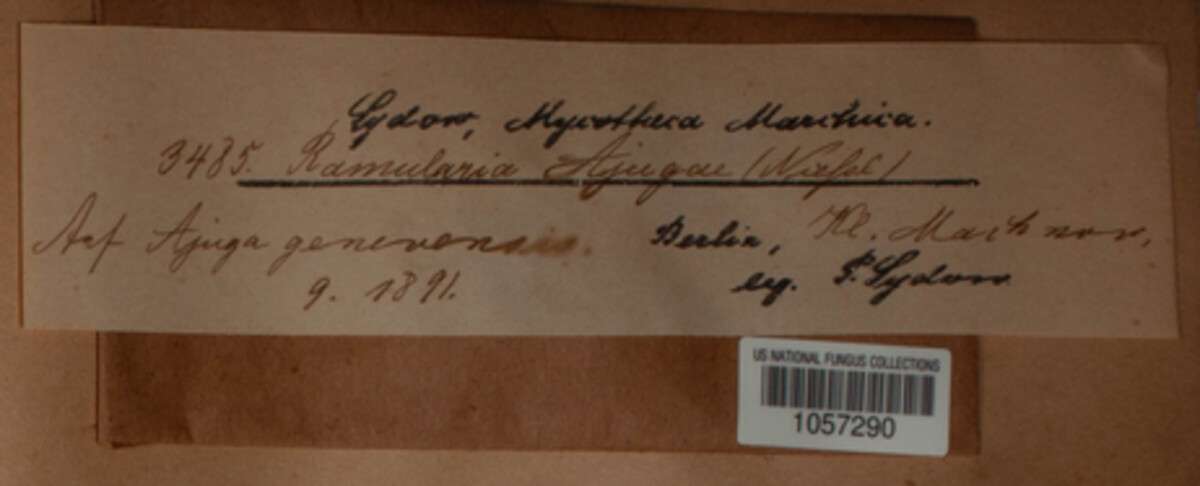 Sydow, Mycotheca Marchica.
3485. Ramularia Ajugae (Niessl)
Auf Ajuga genevensis. Berlin, Kl. Machnow,
9. 1891. leg. P. Sydow
US NATIONAL FUNGUS COLLECTIONS
1057290